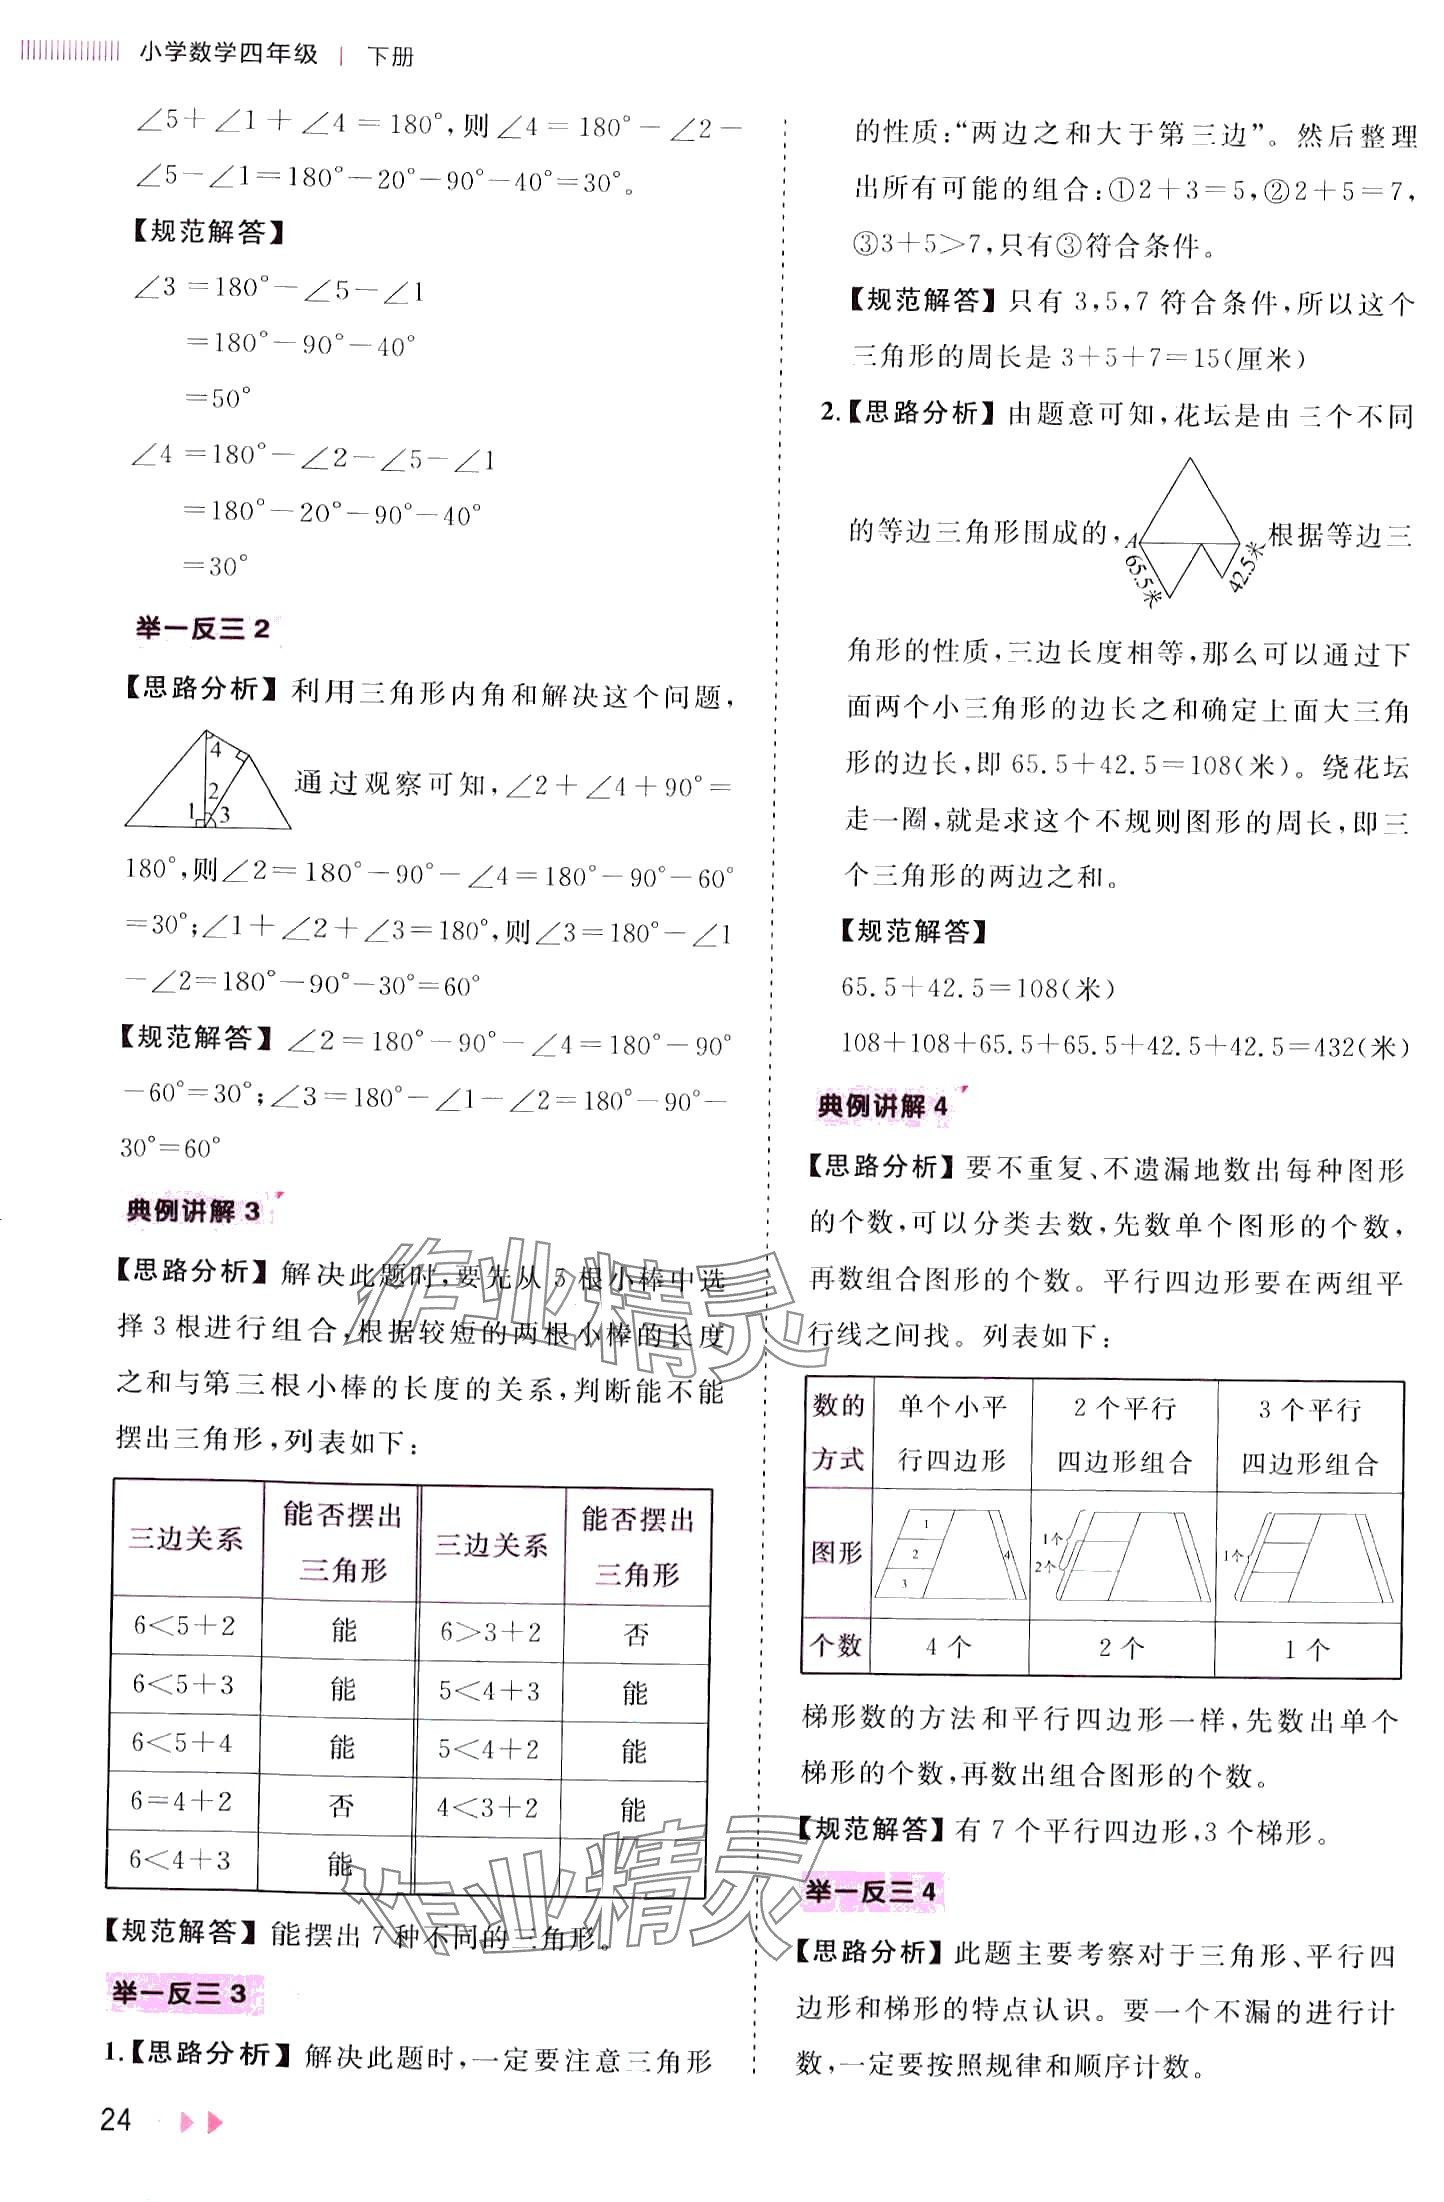 小学数学四年级 | 下册
∠5+∠1+∠4=180°,则∠4=180°-∠2-
∠5-∠1=180°-20°-90°-40°=30°。
【规范解答】
∠3=180°-∠5-∠1
=180°-90°-40°
=50°
∠4=180°-∠2-∠5-∠1
=180°-20°-90°-40°
=30°
举一反三 2
【思路分析】利用三角形内角和解决这个问题,
4
2
1
3
通过观察可知,∠2+∠4+90°=
180°,则∠2=180°-90°-∠4=180°-90°-60°
=30°;∠1+∠2+∠3=180°,则∠3=180°-∠1
-∠2=180°-90°-30°=60°
【规范解答】∠2=180°-90°-∠4=180°-90°
-60°=30°;∠3=180°-∠1-∠2=180°-90°-
30°=60°
典例讲解 3
【思路分析】解决此题时,要先从 5 根小棒中选
择 3 根进行组合,根据较短的两根小棒的长度
之和与第三根小棒的长度的关系,判断能不能
摆出三角形,列表如下:
三边关系 能否摆出三角形 三边关系 能否摆出三角形
6<5+2 能 6>3+2 否
6<5+3 能 5<4+3 能
6<5+4 能 5<4+2 能
6=4+2 否 4<3+2 能
6<4+3 能
【规范解答】能摆出 7 种不同的三角形。
举一反三 3
1.【思路分析】解决此题时,一定要注意三角形
24
的性质:“两边之和大于第三边”。然后整理
出所有可能的组合:①2+3=5,②2+5=7,
③3+5>7,只有③符合条件。
【规范解答】只有 3,5,7 符合条件,所以这个
三角形的周长是 3+5+7=15(厘米)
2.【思路分析】由题意可知,花坛是由三个不同
的等边三角形围成的,
A
65.5米
42.5米
根据等边三
角形的性质,三边长度相等,那么可以通过下
面两个小三角形的边长之和确定上面大三角
形的边长,即 65.5+42.5=108(米)。绕花坛
走一圈,就是求这个不规则图形的周长,即三
个三角形的两边之和。
【规范解答】
65.5+42.5=108(米)
108+108+65.5+65.5+42.5+42.5=432(米)
典例讲解 4
【思路分析】要不重复、不遗漏地数出每种图形
的个数,可以分类去数,先数单个图形的个数,
再数组合图形的个数。平行四边形要在两组平
行线之间找。列表如下:
数的 单个小平 2 个平行 3 个平行
方式 行四边形 四边形组合 四边形组合
图形
1
2
3
4
1个
2个
1个
个数 4 个 2 个 1 个
梯形数的方法和平行四边形一样,先数出单个
梯形的个数,再数出组合图形的个数。
【规范解答】有 7 个平行四边形,3 个梯形。
举一反三 4
【思路分析】此题主要考察对于三角形、平行四
边形和梯形的特点认识。要一个不漏的进行计
数,一定要按照规律和顺序计数。
作业精灵
作业精灵